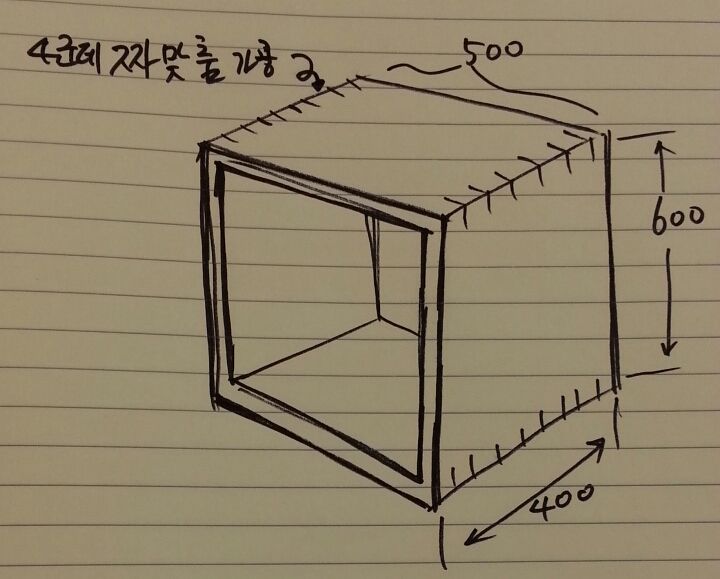 4군데 짜맞춤 가공
500
600
400